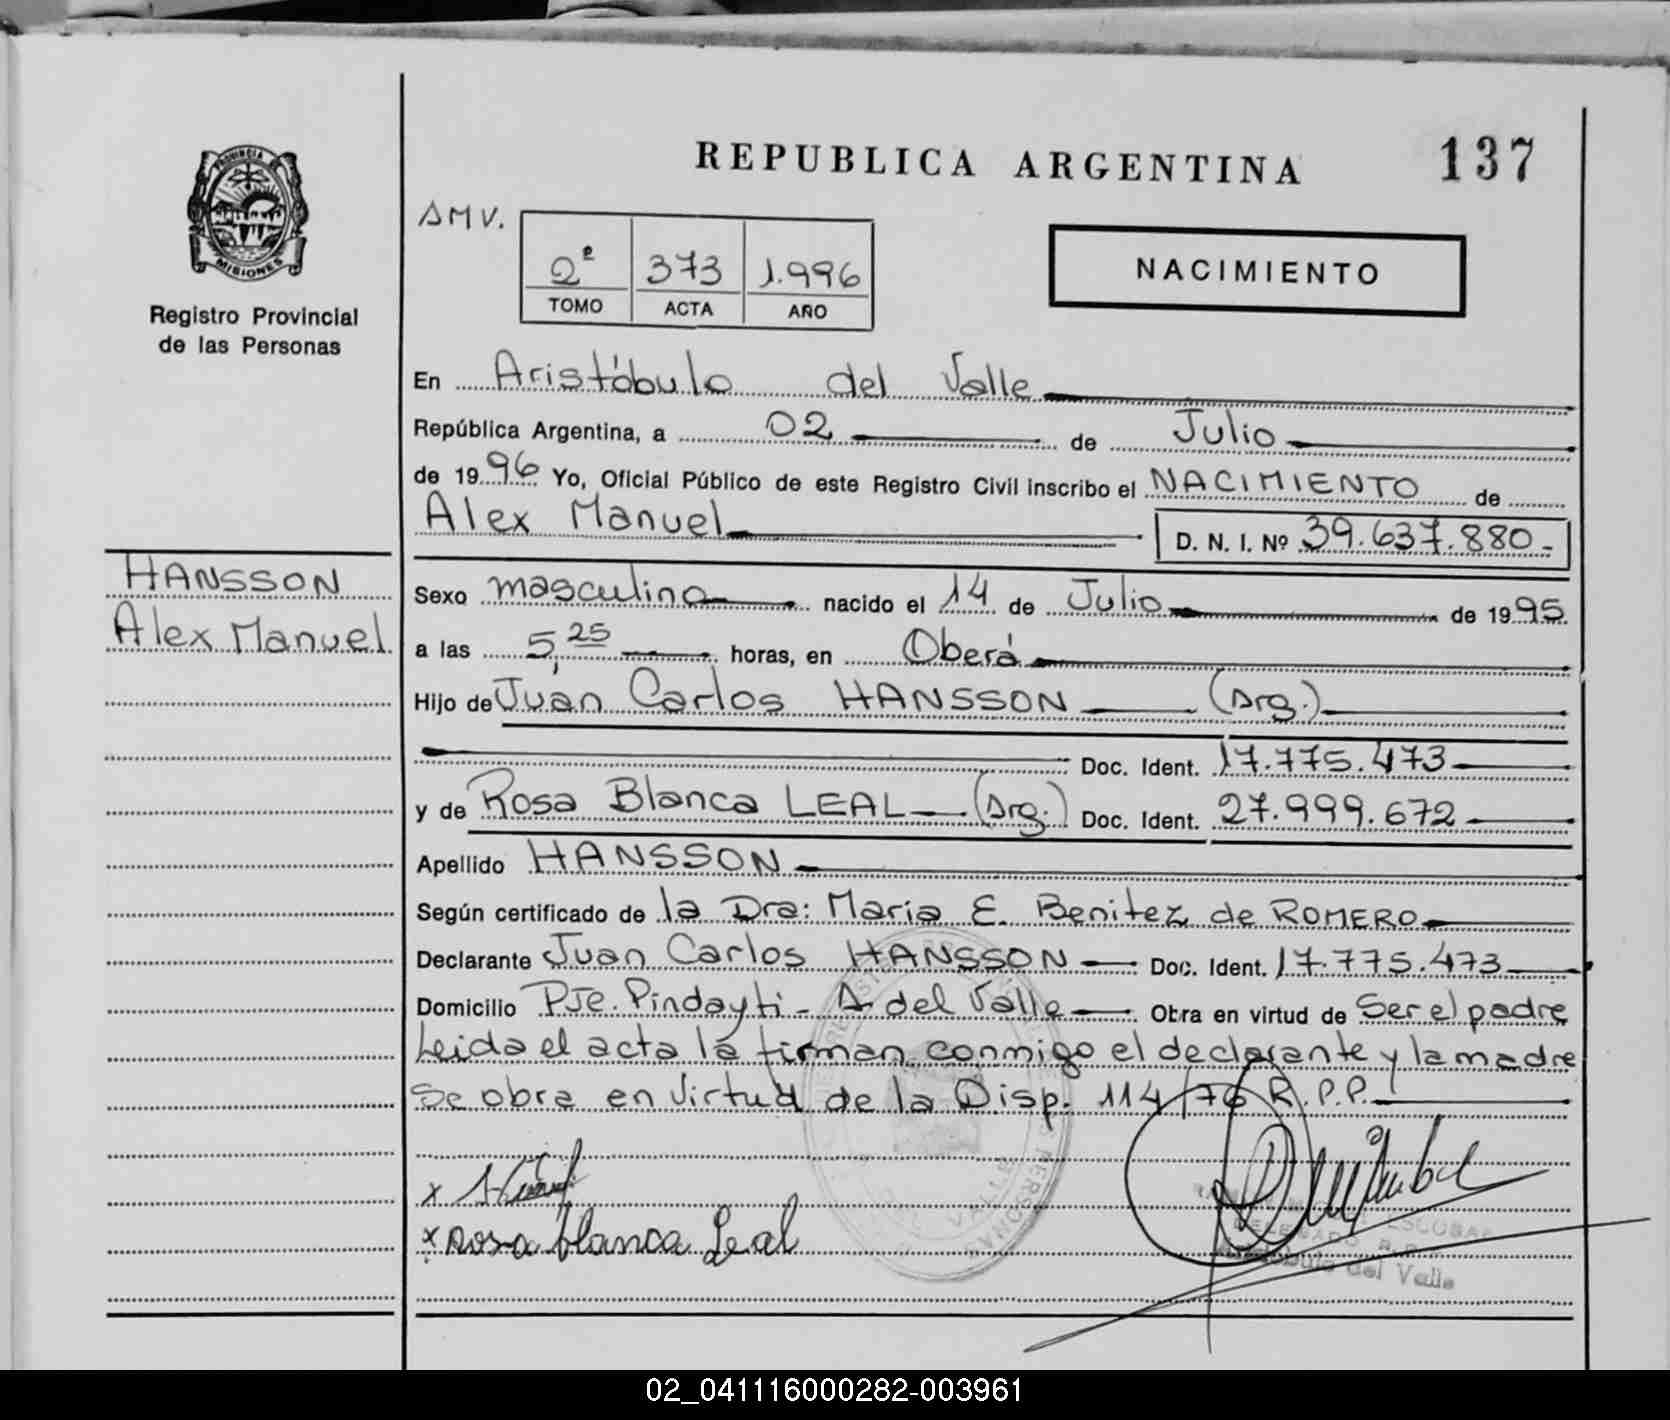 PROVINCIA DE
MISIONES
Registro Provincial
de las Personas
HANSSON
Alex Manuel
REPUBLICA ARGENTINA
137
AMV.
2º 373 1.996
TOMO ACTA AÑO
NACIMIENTO
En Aristóbulo del Valle
República Argentina, a 02 de Julio
de 1996 Yo, Oficial Público de este Registro Civil inscribo el NACIMIENTO de
Alex Manuel D. N. I. Nº 39.637.880-
Sexo masculino nacido el 14 de Julio de 1995
a las 5,25 horas, en Oberá
Hijo de Juan Carlos HANSSON (Arg.)
Doc. Ident. 17.775.473
y de Rosa Blanca LEAL (Arg.) Doc. Ident. 27.999.672
Apellido HANSSON
Según certificado de la Dra: Maria E. Benitez de ROMERO
Declarante Juan Carlos HANSSON Doc. Ident. 17.775.473
Domicilio Pje. Pindayti - A del Valle Obra en virtud de Ser el padre
Leida el acta la firman conmigo el declarante y la madre
Se obra en virtud de la Disp. 114/76 R.P.P.
x
x Rosa blanca Leal
ESCOBAR
DELEGADO R.P.
Aristóbulo del Valle
02_041116000282-003961